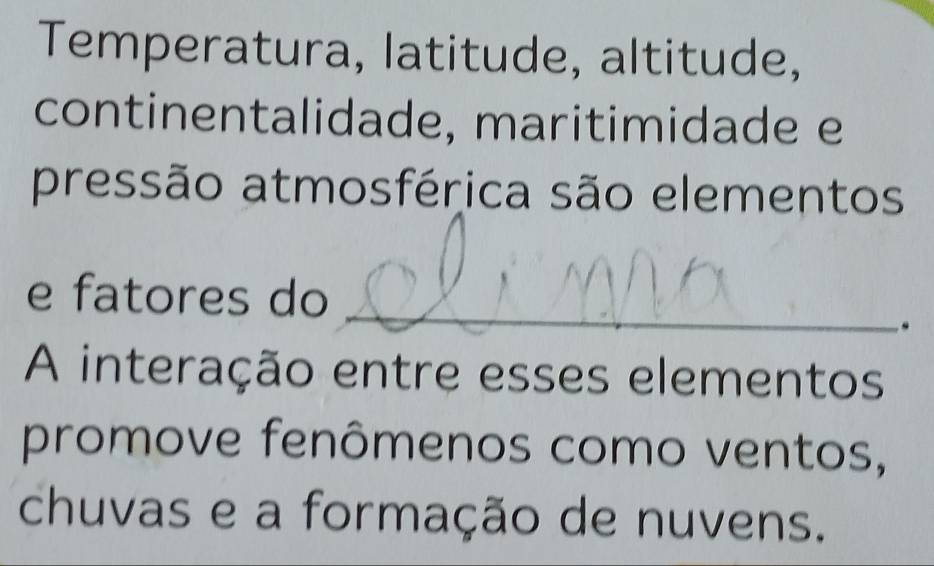 Temperatura, latitude, altitude,
continentalidade, maritimidade e
pressão atmosférica são elementos
e fatores do clima.
A interação entre esses elementos
promove fenômenos como ventos,
chuvas e a formação de nuvens.